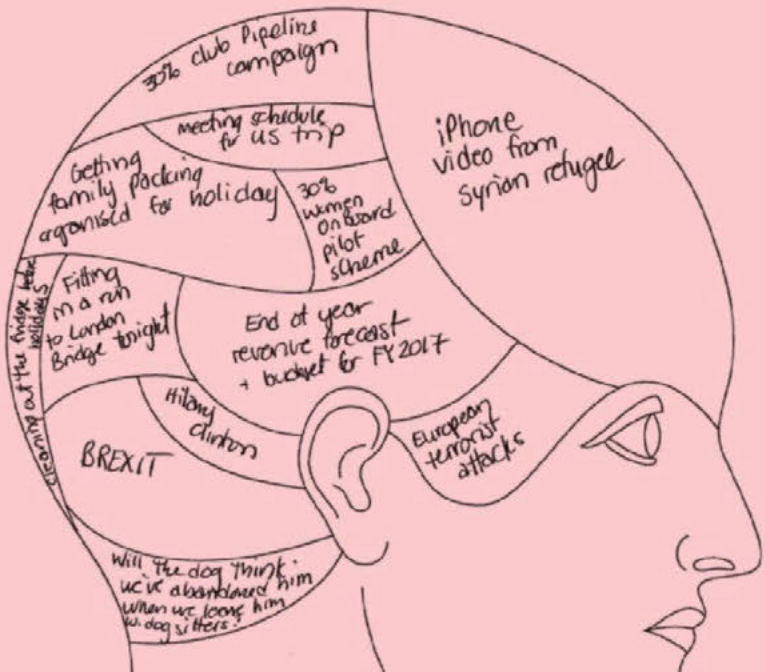 30% club Pipeline
campaign
meeting schedule
for US trip
iPhone
video from
syrian refugee
Getting
family packing
organised for holiday
30%
women
onboard
pilot
scheme
clearing out the fridge before
holidays
Fitting
in a run
to London
Bridge tonight
End of year
revenue forecast
+ budget for FY2017
Hilary
Clinton
European
terrorist
attacks
BREXIT
Will the dog think
we've abandoned him
when we leave him
w. dog sitters?